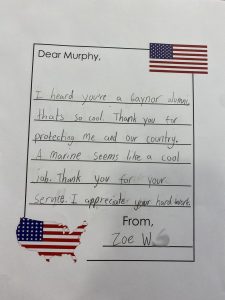 Dear Murphy,
I heard you're a Gaynor alumni,
thats so cool. Thank you for
protecting me and our country.
A marine seems like a cool
job. Thank you for your
service. I appreciate your hard work.
From,
Zoe W.